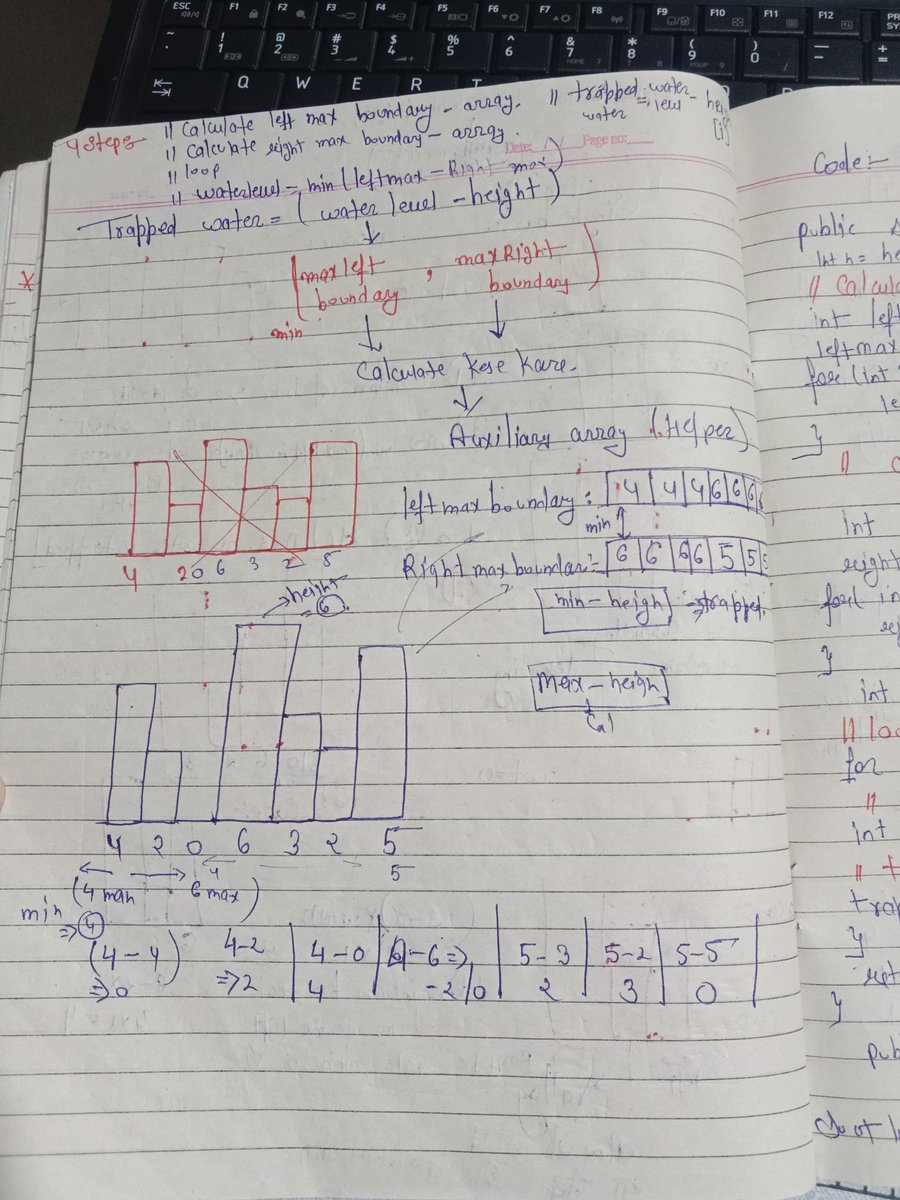 ESC F1 F2 F3 F4 F5 F6 F7 F8 F9 F10 F11 F12
~ ! 1 @ 2 # 3 $ 4 % 5 ^ 6 & 7 * 8 ( 9 ) 0 — + =
Q W E R T
HOME PGUP
4 Steps
// Calculate left max boundary - array.
// Calculate right max boundary - array.
// loop
// waterlevel = min (leftmax - Right max)
// trapped water = water level - hei
[i]
Date: Page no:
Trapped water = (water level - height)
(max left boundary , max Right boundary)
min
Calculate kese kare.
Auxiliary array (Helper)
left max boundary = 4 4 4 6 6 6 6
min
Right max boundar = 6 6 6 6 5 5 5
min - heigh ⇒ trapped.
max - heigh
4 2 0 6 3 2 5
→ height = 6
4 2 0 6 3 2 5
4 5
(4 max 6 max)
min ⇒ 4
(4 - 4) 4-2 4-0 6-6 ⇒ 5-3 5-2 5-5
⇒ 0 ⇒ 2 4 -2 0 2 3 0
Code:-
public
int n = he
// Calcul
int left
leftmax
for (int
le
}
//
int
right
for( in
}
int
// loo
for
//
int
// t
trap
}
ret
}
pub